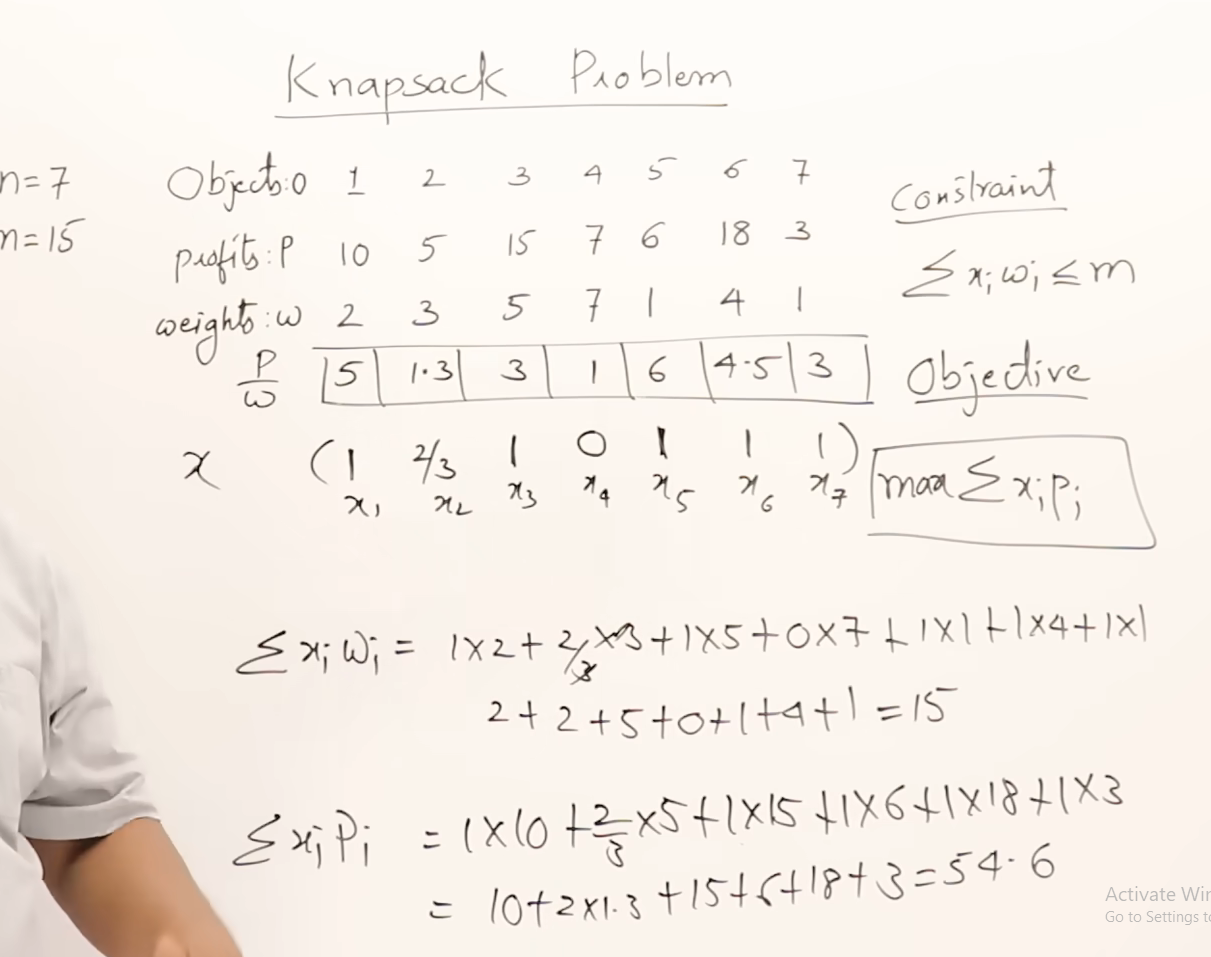 Knapsack Problem
n=7
m=15
Objects:O 1 2 3 4 5 6 7
profits:P 10 5 15 7 6 18 3
weights:w 2 3 5 7 1 4 1
P/w 5 1.3 3 1 6 4.5 3
x (1 2/3 1 0 1 1 1)
x₁ x₂ x₃ x₄ x₅ x₆ x₇
Constraint
Σxᵢwᵢ ≤ m
Objective
max Σxᵢpᵢ
Σxᵢwᵢ = 1×2+2/3×3+1×5+0×7+1×1+1×4+1×1
2+2+5+0+1+4+1=15
Σxᵢpᵢ = 1×10+2/3×5+1×15+1×6+1×18+1×3
= 10+2×1.3+15+6+18+3=54.6
Activate Wi
Go to Settings t